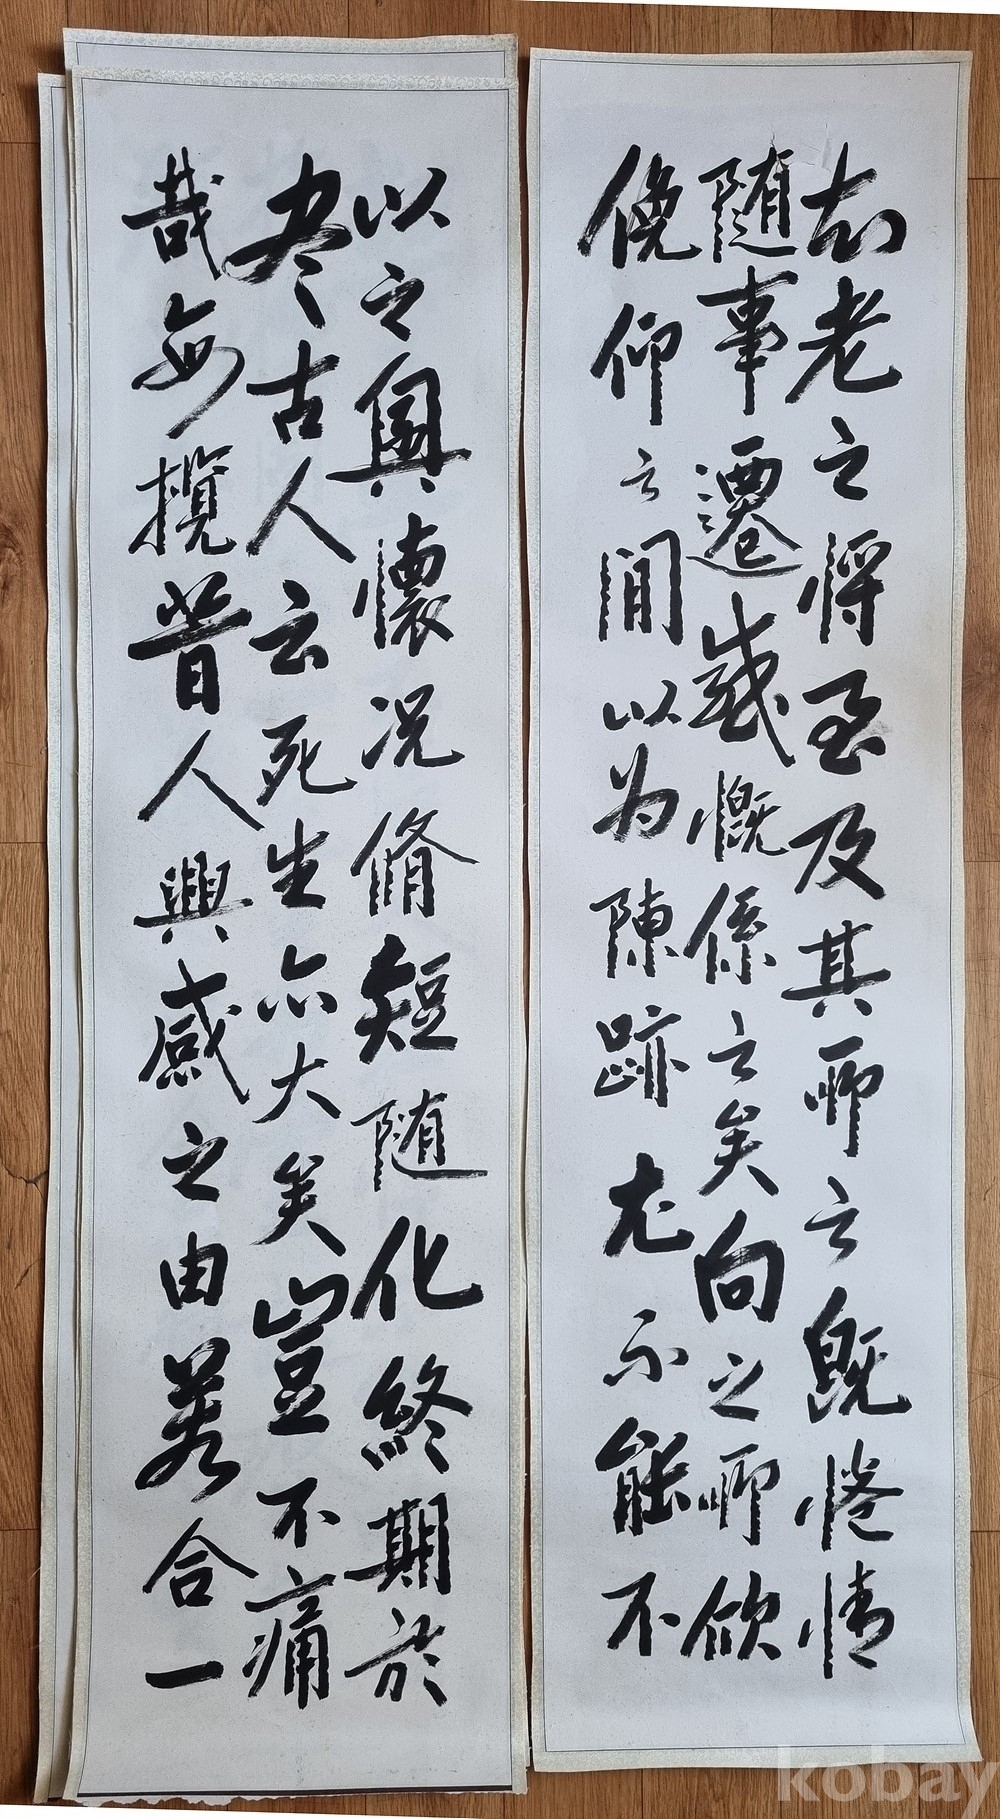 知老之將至及其所之既惓情
随事遷感慨係之矣向之所欣
俛仰之間以为陳跡尤不能不
以之興懷况脩短随化終期於
尽古人云死生亦大矣豈不痛
哉每攬昔人興感之由若合一
kobay